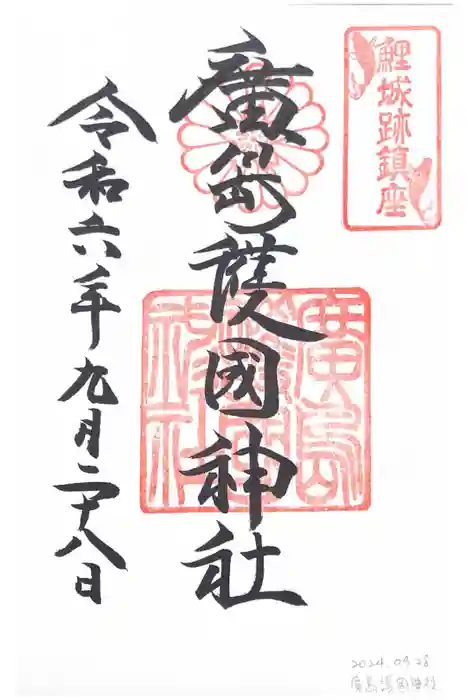 鯉城跡鎮座
廣島護國神社
令和六年九月二十八日
廣島護國神社
2024.09.28
廣島護國神社